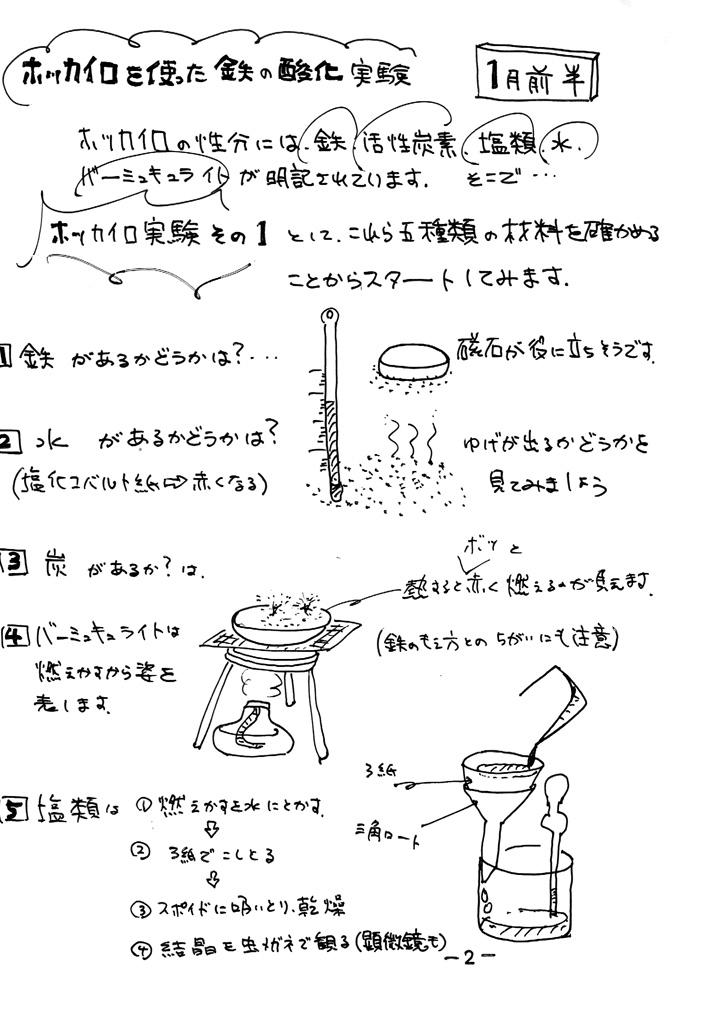 ホッカイロを使った鉄の酸化実験
1月前半
ホッカイロの性分には、鉄、活性炭素、塩類、水、
バーミュキュライトが明記されています. そこで…
ホッカイロ実験その1として、これら五種類の材料を確かめる
ことからスタートしてみます.
1 鉄があるかどうかは?…
磁石が役に立ちそうです.
2 水があるかどうかは?
(塩化コバルト紙⇨赤くなる)
ゆげが出るかどうかを
見てみましょう
3 炭があるか?は.
ボッと
熱すると赤く燃えるのが見えます.
(鉄のもえ方とのちがいにも注意)
4 バーミュキュライトは
燃えかすから姿を
表します.
5 塩類は ① 燃えかすを水にとかす.
⇩
② ろ紙でこしとる
⇩
③ スポイドに吸いとり、乾燥
④ 結晶を虫メガネで観る(顕微鏡も)
ろ紙
三角ロート
-2-